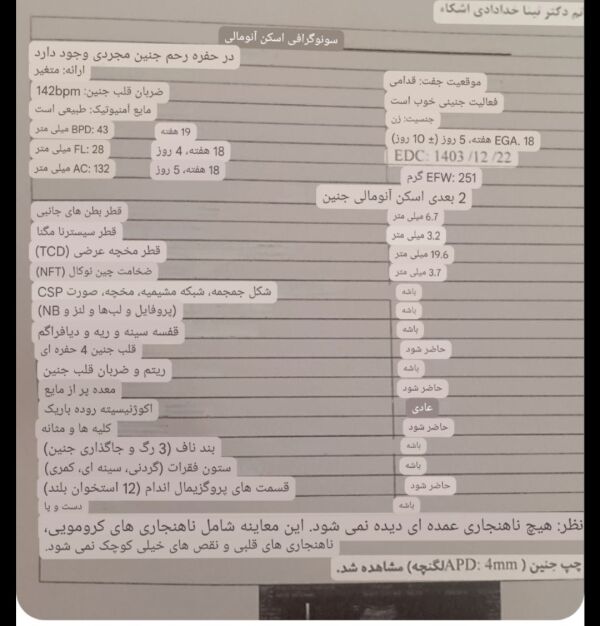 نم دکتر نینا خدادادی اشکاء
سونوگرافی اسکن آنومالی
در حفره رحم جنین مجردی وجود دارد
ارائه: متغیر
موقعیت جفت: قدامی
ضربان قلب جنین: 142bpm
فعالیت جنینی خوب است
مایع آمنیوتیک: طبیعی است
جنسیت: زن
BPD: 43 میلی متر
19 هفته
EGA. 18 هفته، 5 روز (± 10 روز)
FL: 28 میلی متر
18 هفته، 4 روز
EDC: 1403 /12 /22
AC: 132 میلی متر
18 هفته، 5 روز
EFW: 251 گرم
2 بعدی اسکن آنومالی جنین
قطر بطن های جانبی
6.7 میلی متر
قطر سیسترنا مگنا
3.2 میلی متر
قطر مخچه عرضی (TCD)
19.6 میلی متر
ضخامت چین نوکال (NFT)
3.7 میلی متر
شکل جمجمه، شبکه مشیمیه، مخچه، صورت CSP
باشه
(پروفایل و لب‌ها و لنز و NB)
باشه
قفسه سینه و ریه و دیافراگم
باشه
قلب جنین 4 حفره ای
حاضر شود
ریتم و ضربان قلب جنین
باشه
معده پر از مایع
حاضر شود
اکوژنیسیته روده باریک
عادی
کلیه ها و مثانه
حاضر شود
بند ناف (3 رگ و جاگذاری جنین)
باشه
ستون فقرات (گردنی، سینه ای، کمری)
باشه
قسمت های پروگزیمال اندام (12 استخوان بلند)
حاضر شود
دست و پا
باشه
نظر: هیچ ناهنجاری عمده ای دیده نمی شود. این معاینه شامل ناهنجاری های کرومویی،
ناهنجاری های قلبی و نقص های خیلی کوچک نمی شود.
چپ جنین ( APD: 4mmلگنچه) مشاهده شد.